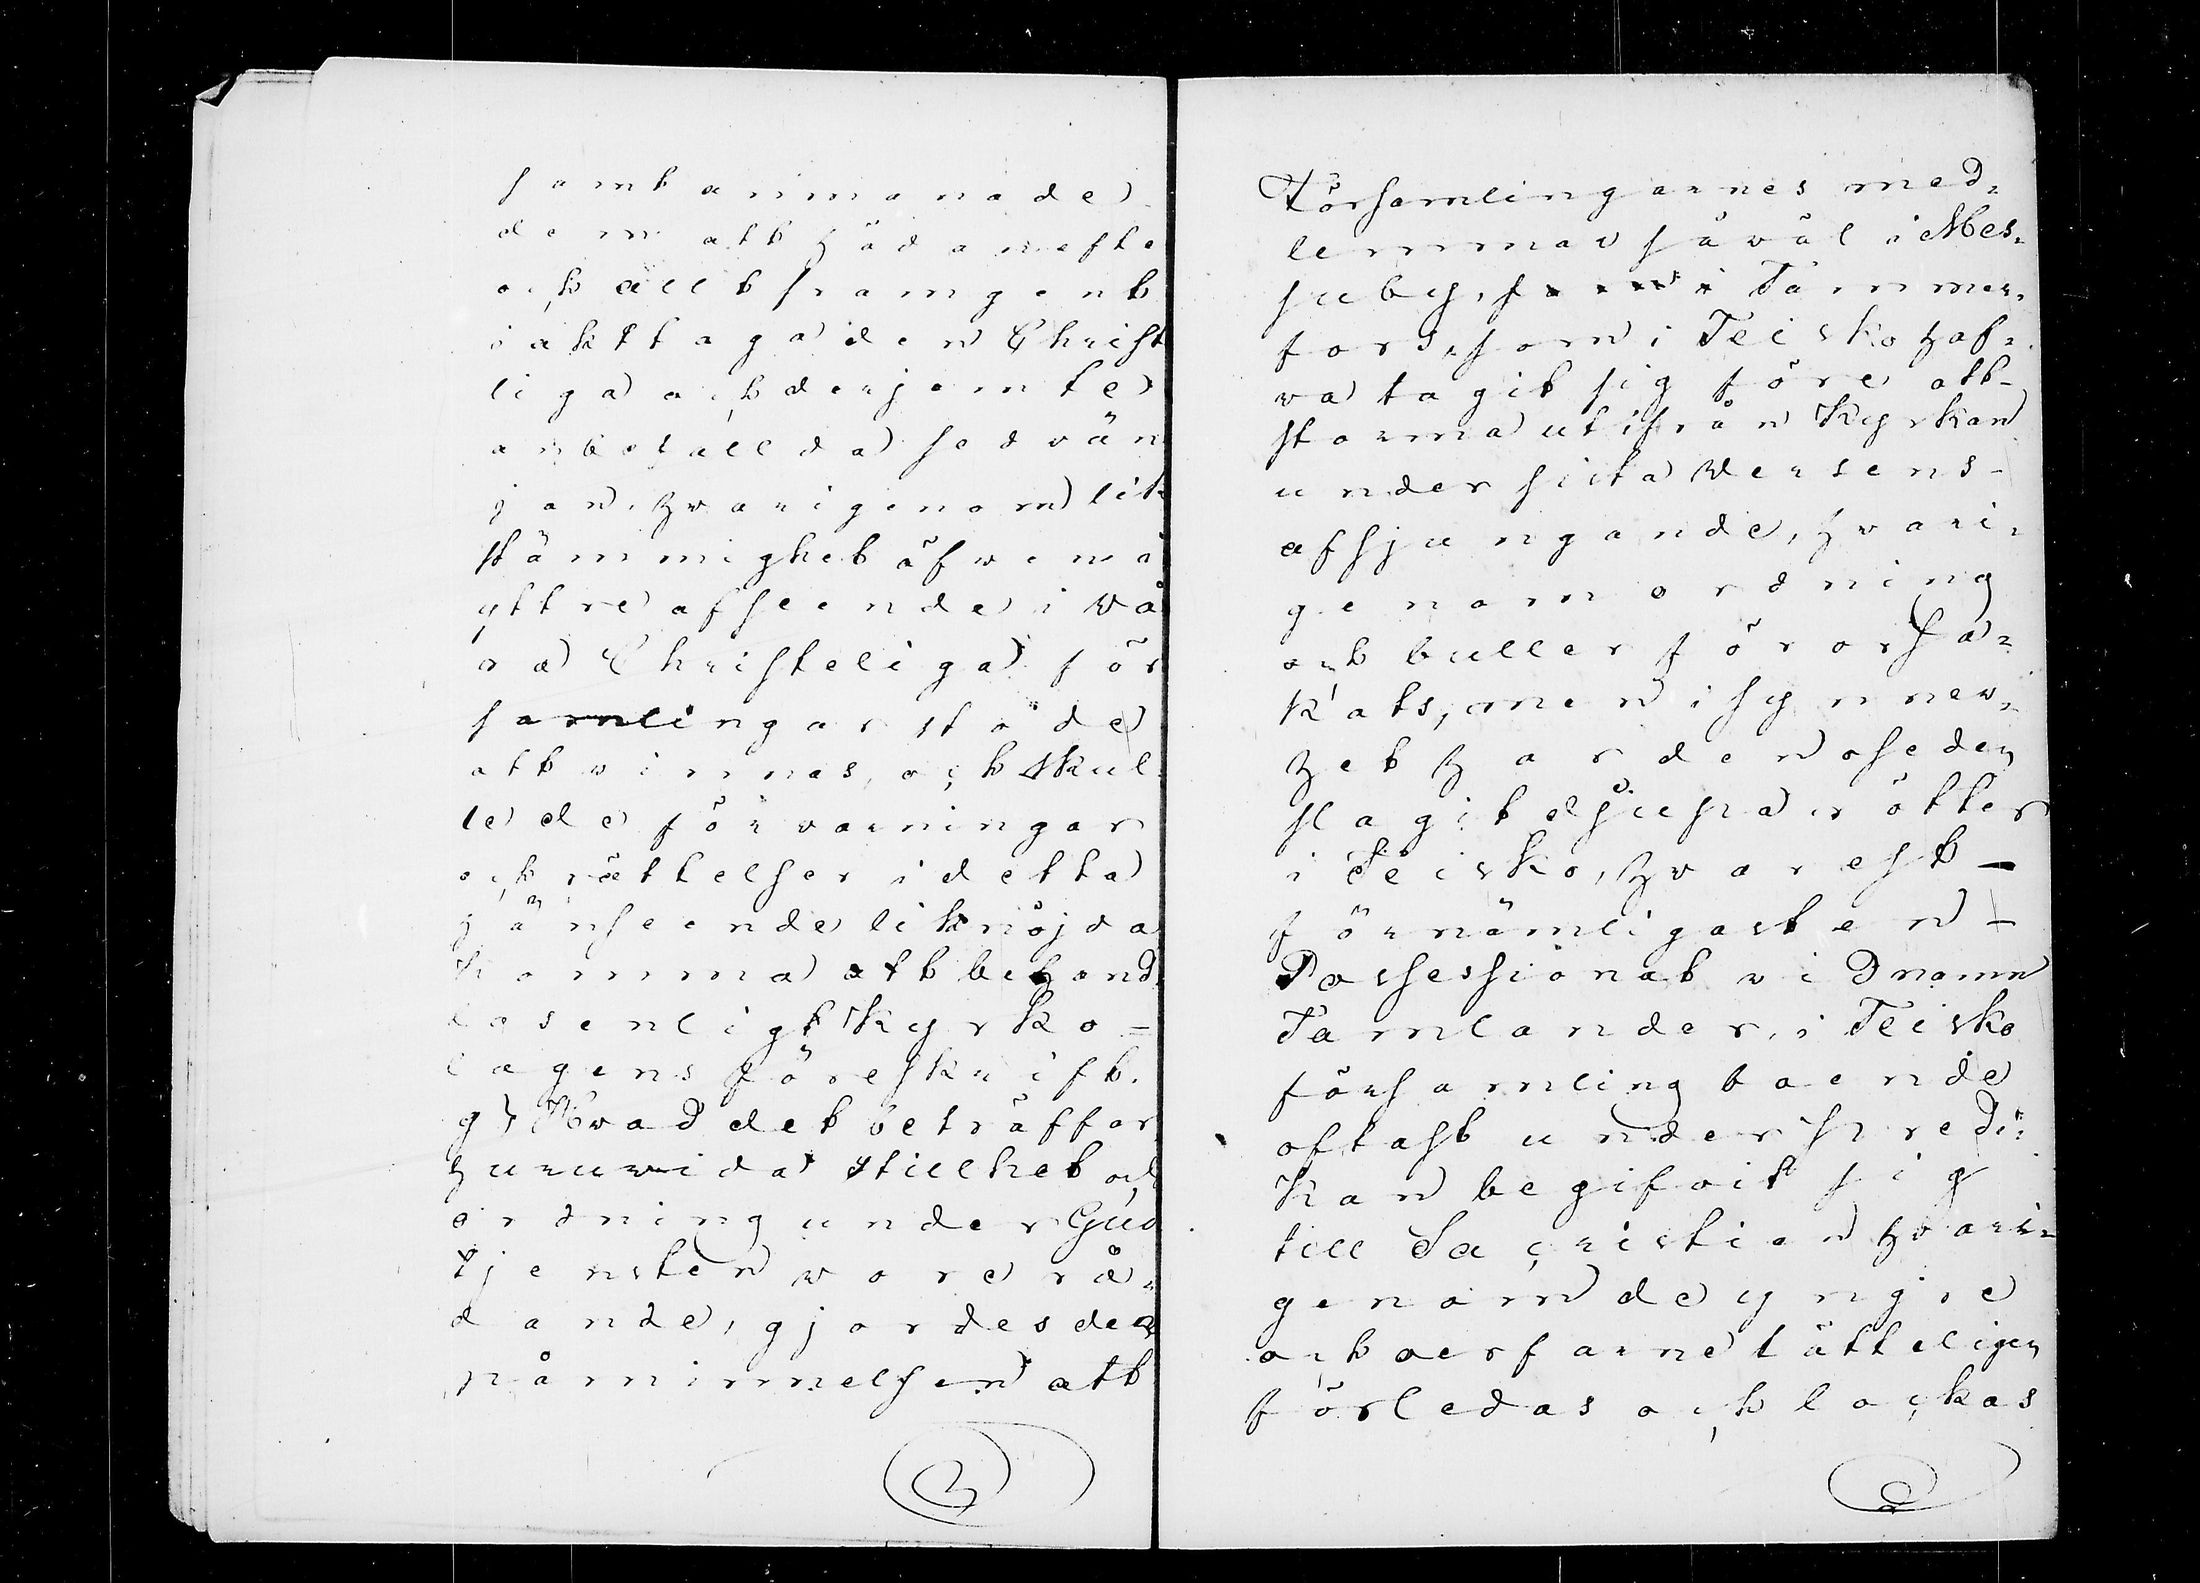 samt anmanade
dem att hädanefte
och allt framgent
iakttaga den Christ
liga och derjemte
anbefallda sedvän
jan, hvarigenom lik
stämmighet äfven i
yttre afseende i vå
ra Christeliga för
samlingar stode
att vinnas, och skul
le de förvarningar
och rättelser i detta
hänseende liknöjda
komma att behand
las enligt Kyrko-
lagens föreskrift.
g) Hvad det beträffar
huruvida stillhet och
ordning under Gud
tjensten vore rå-
dande, gjordes den
påminnelsen att
Församlingarnes med-
lemmar såväl i Mes-
suby, som i Tammer-
fors, som i Teisko haf-
va tagit sig före att
storma ut ifrån Kyrkan
under sista versens
afsjungande, hvari-
genom oordning
och buller förorsa-
kats, men i synner-
het har den oseden
slagit djupa rötter
i Teisko, hvarest
förnämligasten
Possessionat vid namn
Tamlander, i Teisko
församling boende
oftast under predi-
kan begifvit sig
till Sacristian hvari-
genom de yngre
och oerfarne lätteligen
förledas och lockas